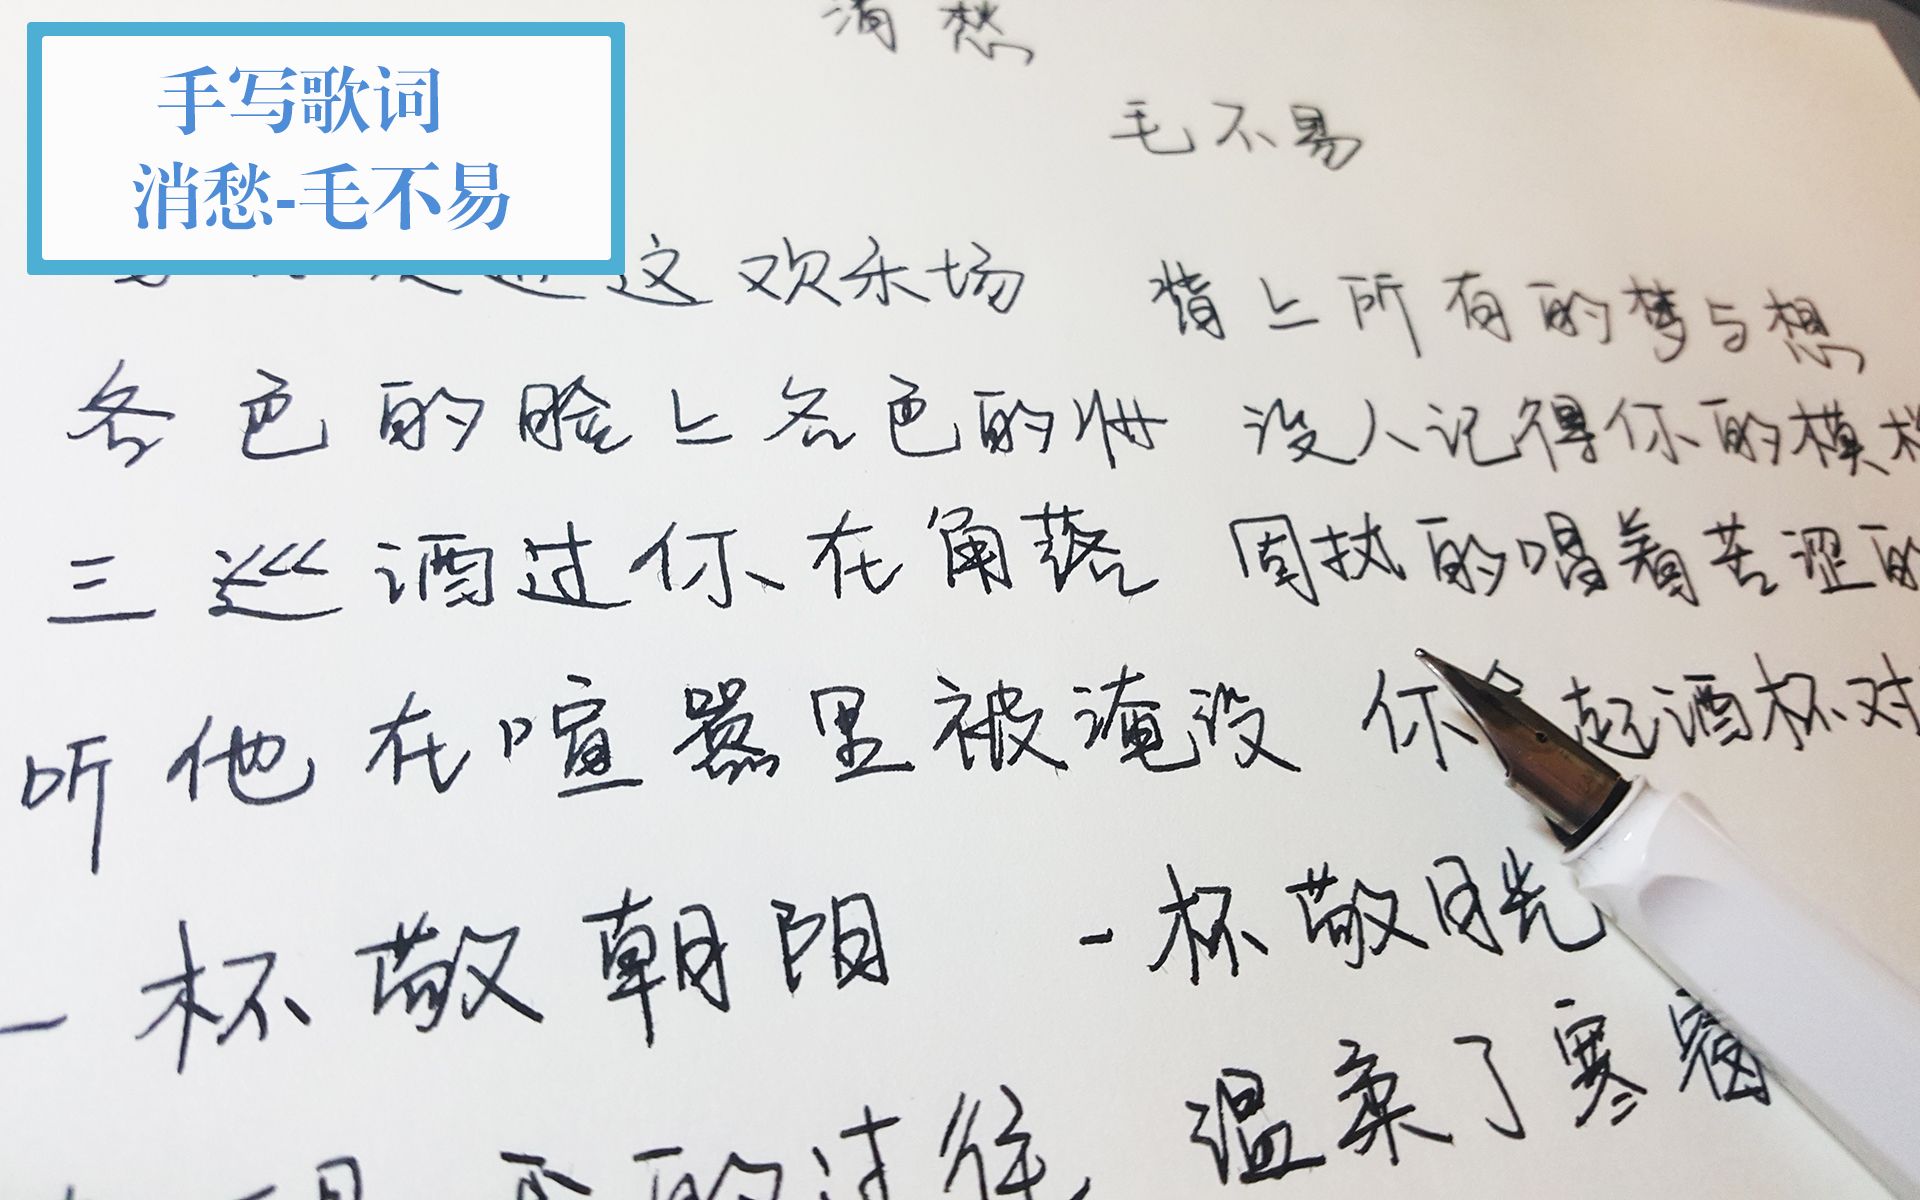 手写歌词
消愁-毛不易
消愁
毛不易
这欢乐场 背上所有的梦与想
各色的脸上各色的妆 没人记得你的模
三巡酒过你在角落 固执的唱着苦涩的
听他在喧嚣里被淹没 你起酒杯对
一杯敬朝阳 一杯敬月光
的过往 温柔了寒窗